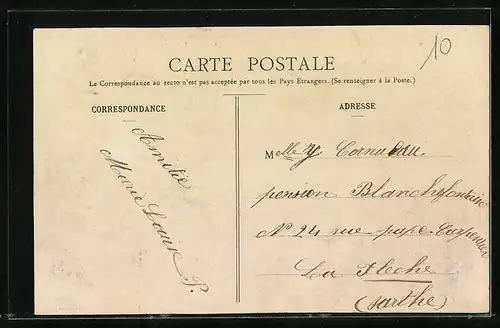 10
CARTE POSTALE
La Correspondance au recto n'est pas acceptée par tous les Pays Étrangers. (Se renseigner à la Poste.)
CORRESPONDANCE
Amitié
Marie Louise P.
ADRESSE
Melle Y Cornubau
pension Blanchefontaine
N° 24 rue pape-Carpentier
La Fleche
(Sarthe)